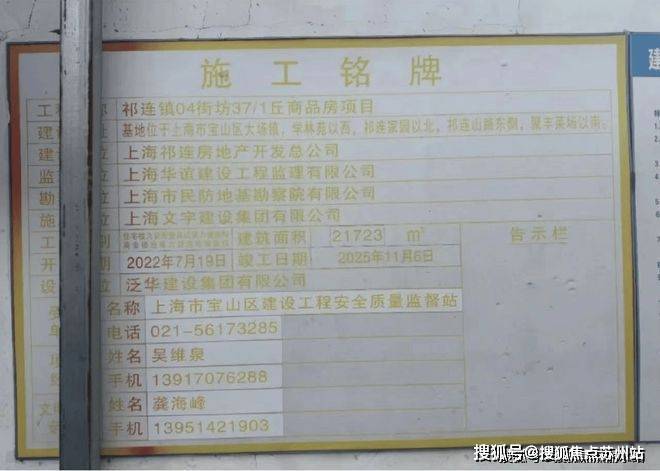 施工铭牌
工 称 祁连镇04街坊37/1丘商品房项目
建 址 基地位于上南市宝山区大场镇，学林苑以西，祁连家园以北，祁连山路东侧，聚丰菜场以南。
建 位 上海祁连房地产开发总公司
监 位 上海华谊建设工程监理有限公司
勘 位 上海市民防地基勘察院有限公司
施 位 上海文宇建设集团有限公司
工 别 建筑面积 21723 m² 告示栏
开 期 2022年7月19日 竣工日期 2025年11月6日
设 位 泛华建设集团有限公司
名称 上海市宝山区建设工程安全质量监督站
单 电话 021-56173285
项 姓名 吴维泉
经 手机 13917076288
文 姓名 龚海峰
手机 13951421903
建
搜狐号@搜狐焦点苏州站